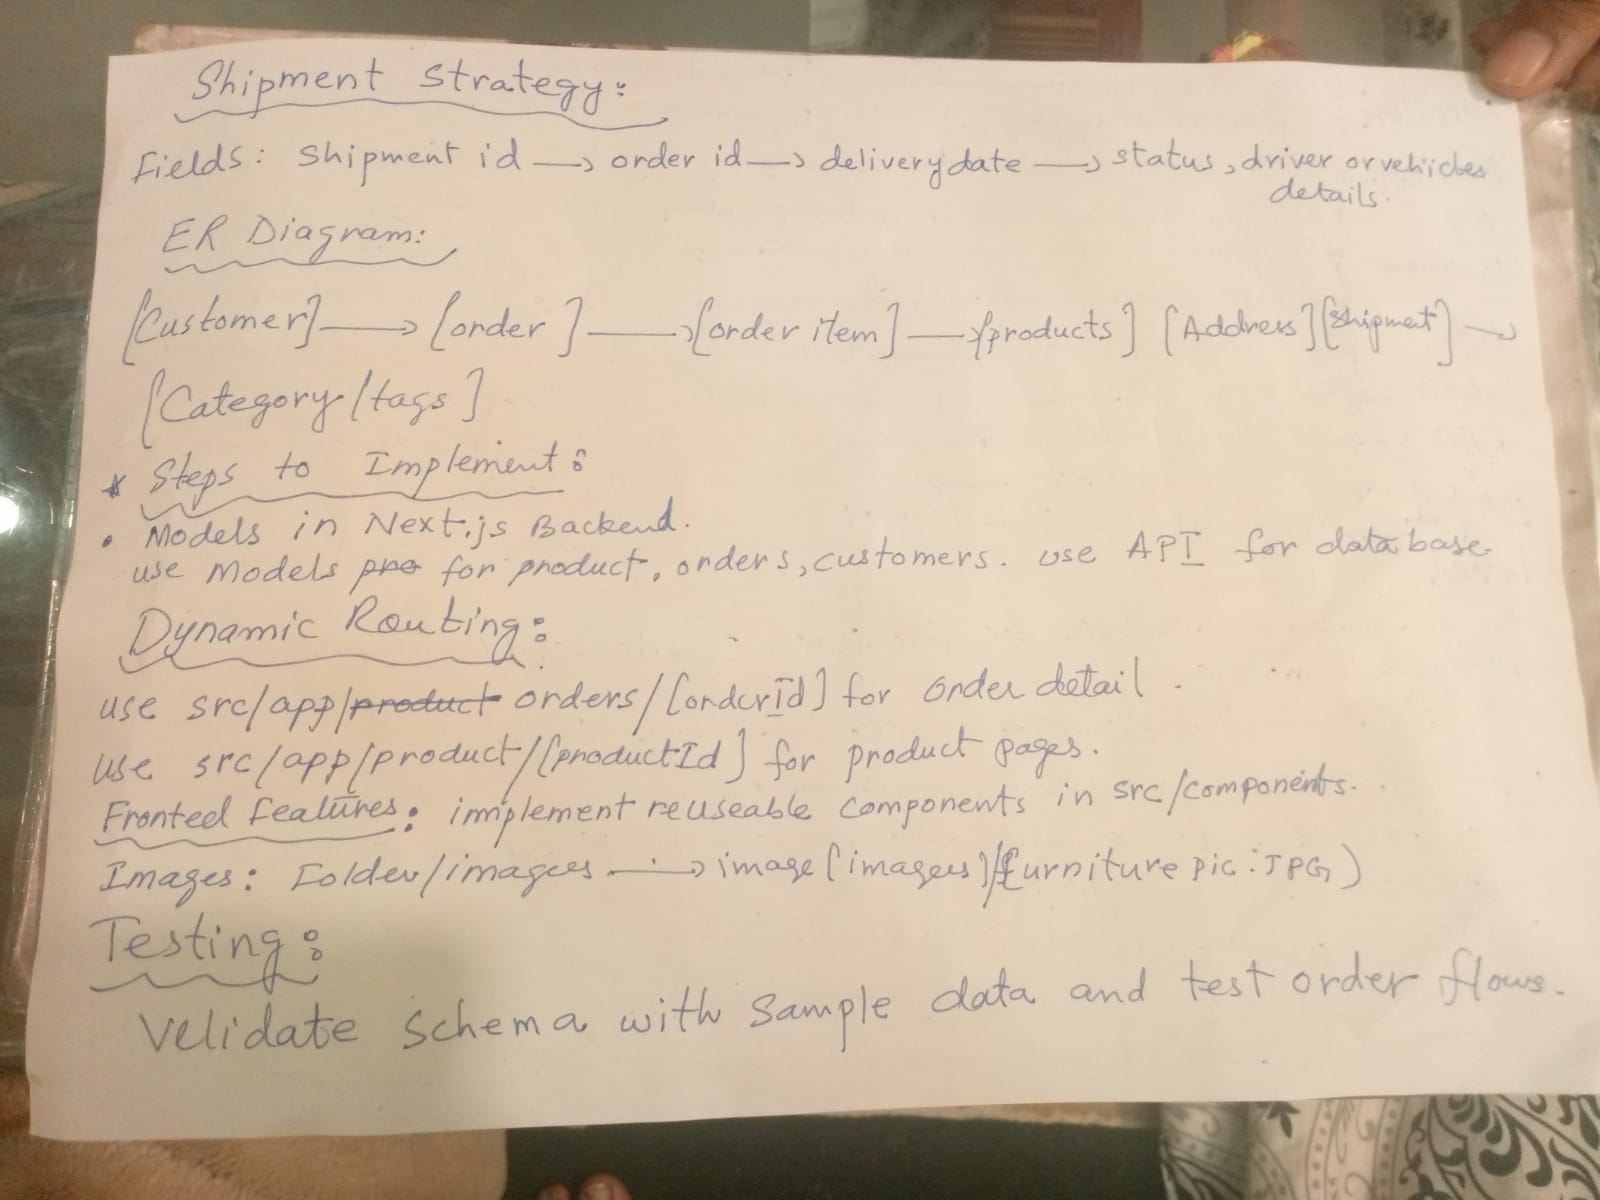 Shipment Strategy:
Fields: Shipment id → order id → delivery date → status, driver or vehicles
details.
ER Diagram:
[Customer] → [order] → [order item] → [products] [Address] [Shipment] →
[Category/tags]
* Steps to Implement:
• Models in Next.js Backend.
use Models pro for product, orders, customers. use API for data base
Dynamic Routing:
use src/app/product orders/[orderId] for order detail.
use src/app/product/[productId] for product pages.
Fronted features: implement reuseable components in src/components.
Images: Folder/imagees. → image [imagees]/furniture pic:JPG)
Testing:
Velidate Schema with Sample data and test order flows.